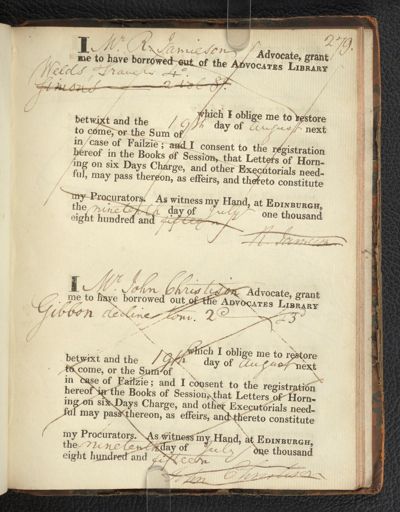 279.
I Mr R. Jamieson Advocate, grant
me to have borrowed out of the ADVOCATES LIBRARY
Welds Travels 4o
Simond 2 vol 8o
which I oblige me to restore
betwixt and the 19th day of august next
to come, or the Sum of
in case of Failzie; and I consent to the registration
hereof in the Books of Session, that Letters of Horn-
ing on six Days Charge, and other Executorials need-
ful, may pass thereon, as effeirs, and thereto constitute
my Procurators. As witness my Hand, at EDINBURGH,
the nineteenth day of July one thousand
eight hundred and fifteen
R. Jamieson
I Mr John Christison Advocate, grant
me to have borrowed out of the ADVOCATES LIBRARY
Gibbon decline Rom. 2d 3d
which I oblige me to restore
betwixt and the 19th day of august next
to come, or the Sum of
in case of Failzie; and I consent to the registration
hereof in the Books of Session, that Letters of Horn-
ing on six Days Charge, and other Executorials need-
ful may pass thereon, as effeirs, and thereto constitute
my Procurators. As witness my Hand, at EDINBURGH,
the nineteenth day of July one thousand
eight hundred and fifteen
John Christison